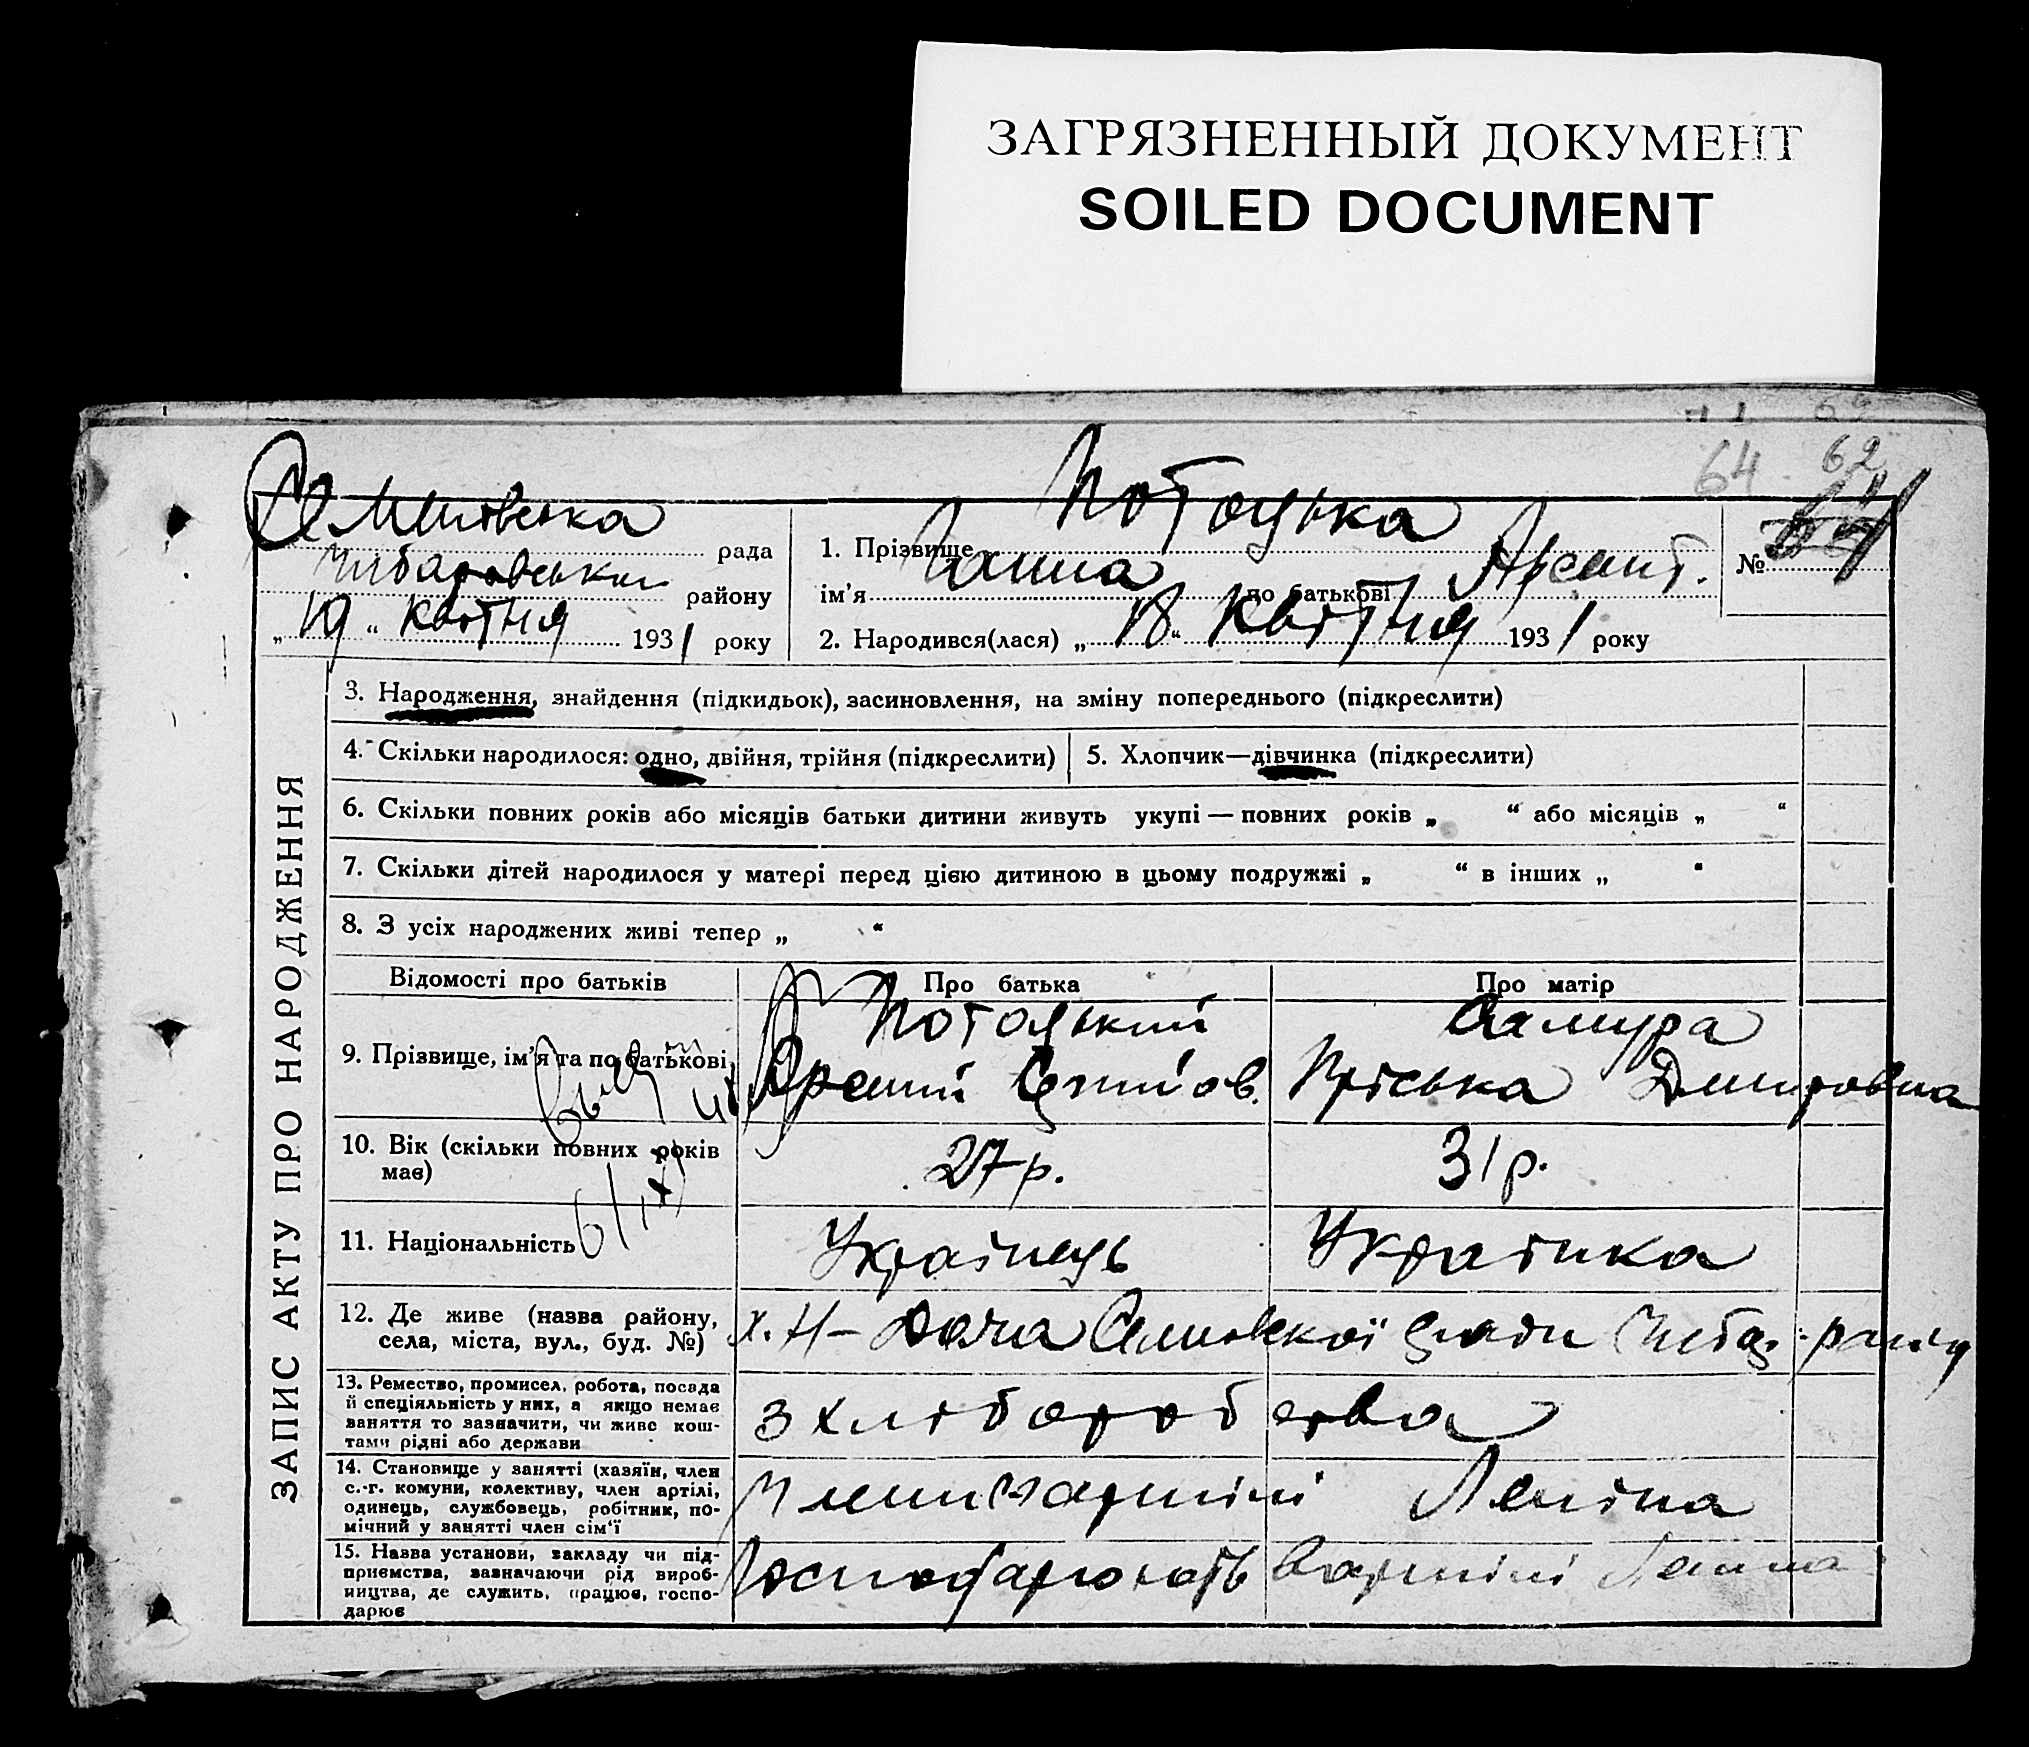 ЗАГРЯЗНЕННЫЙ ДОКУМЕНТ
SOILED DOCUMENT
64 62
рада
району
„19“ квітня 1931 року
1. Прізвище Потоцька
ім'я Ганна по батькові Арсент.
2. Народився(лася) „18“ квітня 1931 року
№
ЗАПИС АКТУ ПРО НАРОДЖЕННЯ
3. Народження, знайдення (підкидьок), засиновлення, на зміну попереднього (підкреслити)
4. Скільки народилося: одно, двійня, трійня (підкреслити)
5. Хлопчик—дівчинка (підкреслити)
6. Скільки повних років або місяців батьки дитини живуть укупі — повних років „ “ або місяців „ “
7. Скільки дітей народилося у матері перед цією дитиною в цьому подружжі „ “ в інших „ “
8. З усіх народжених живі тепер „ “
Відомості про батьків
Про батька
Про матір
9. Прізвище, ім'я та по батькові
Потоцький
Пріська Дмитровна
10. Вік (скільки повних років
має)
27 р.
31 р.
11. Національність
Українець
Українка
12. Де живе (назва району,
села, міста, вул., буд. №)
х. Н-Дача
13. Ремество, промисел, робота, посада
й спеціяльність у них, а якщо немає
заняття то зазначити, чи живе кош-
тами рідні або держави
з хліборобства
14. Становище у занятті (хазяїн, член
с.-г. комуни, колективу, член артілі,
одинець, службовець, робітник, по-
мічний у занятті член сім'ї
Члени артілі Леніна
15. Назва установи, закладу чи під-
приємства, зазначаючи рід вироб-
ництва, де служить, працює, госпо-
дарює
Господарюють в артілі Леніна